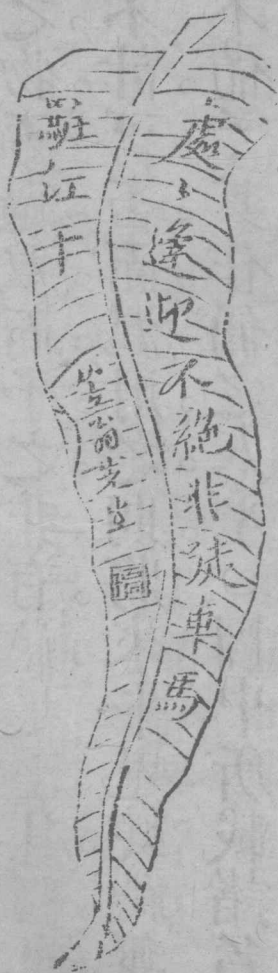 處〻逢迎不絕非徒車馬
駐江干
笠翁